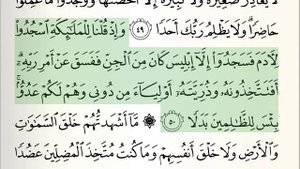 لَا يُغَادِرُ صَغِيرَةً وَلَا كَبِيرَةً إِلَّآ أَحْصَىٰهَا وَوَجَدُوا۟ مَا عَمِلُوا۟
حَاضِرًا وَلَا يَظْلِمُ رَبُّكَ أَحَدًا ٤٩ وَإِذْ قُلْنَا لِلْمَلَٰٓئِكَةِ ٱسْجُدُوا۟
لِءَادَمَ فَسَجَدُوٓا۟ إِلَّآ إِبْلِيسَ كَانَ مِنَ ٱلْجِنِّ فَفَسَقَ عَنْ أَمْرِ رَبِّهِۦٓ
أَفَتَتَّخِذُونَهُۥ وَذُرِّيَّتَهُۥٓ أَوْلِيَآءَ مِن دُونِى وَهُمْ لَكُمْ عَدُوٌّۢ
بِئْسَ لِلظَّٰلِمِينَ بَدَلًا ٥٠ ۞ مَّآ أَشْهَدتُّهُمْ خَلْقَ ٱلسَّمَٰوَٰتِ
وَٱلْأَرْضِ وَلَا خَلْقَ أَنفُسِهِمْ وَمَا كُنتُ مُتَّخِذَ ٱلْمُضِلِّينَ عَضُدًا